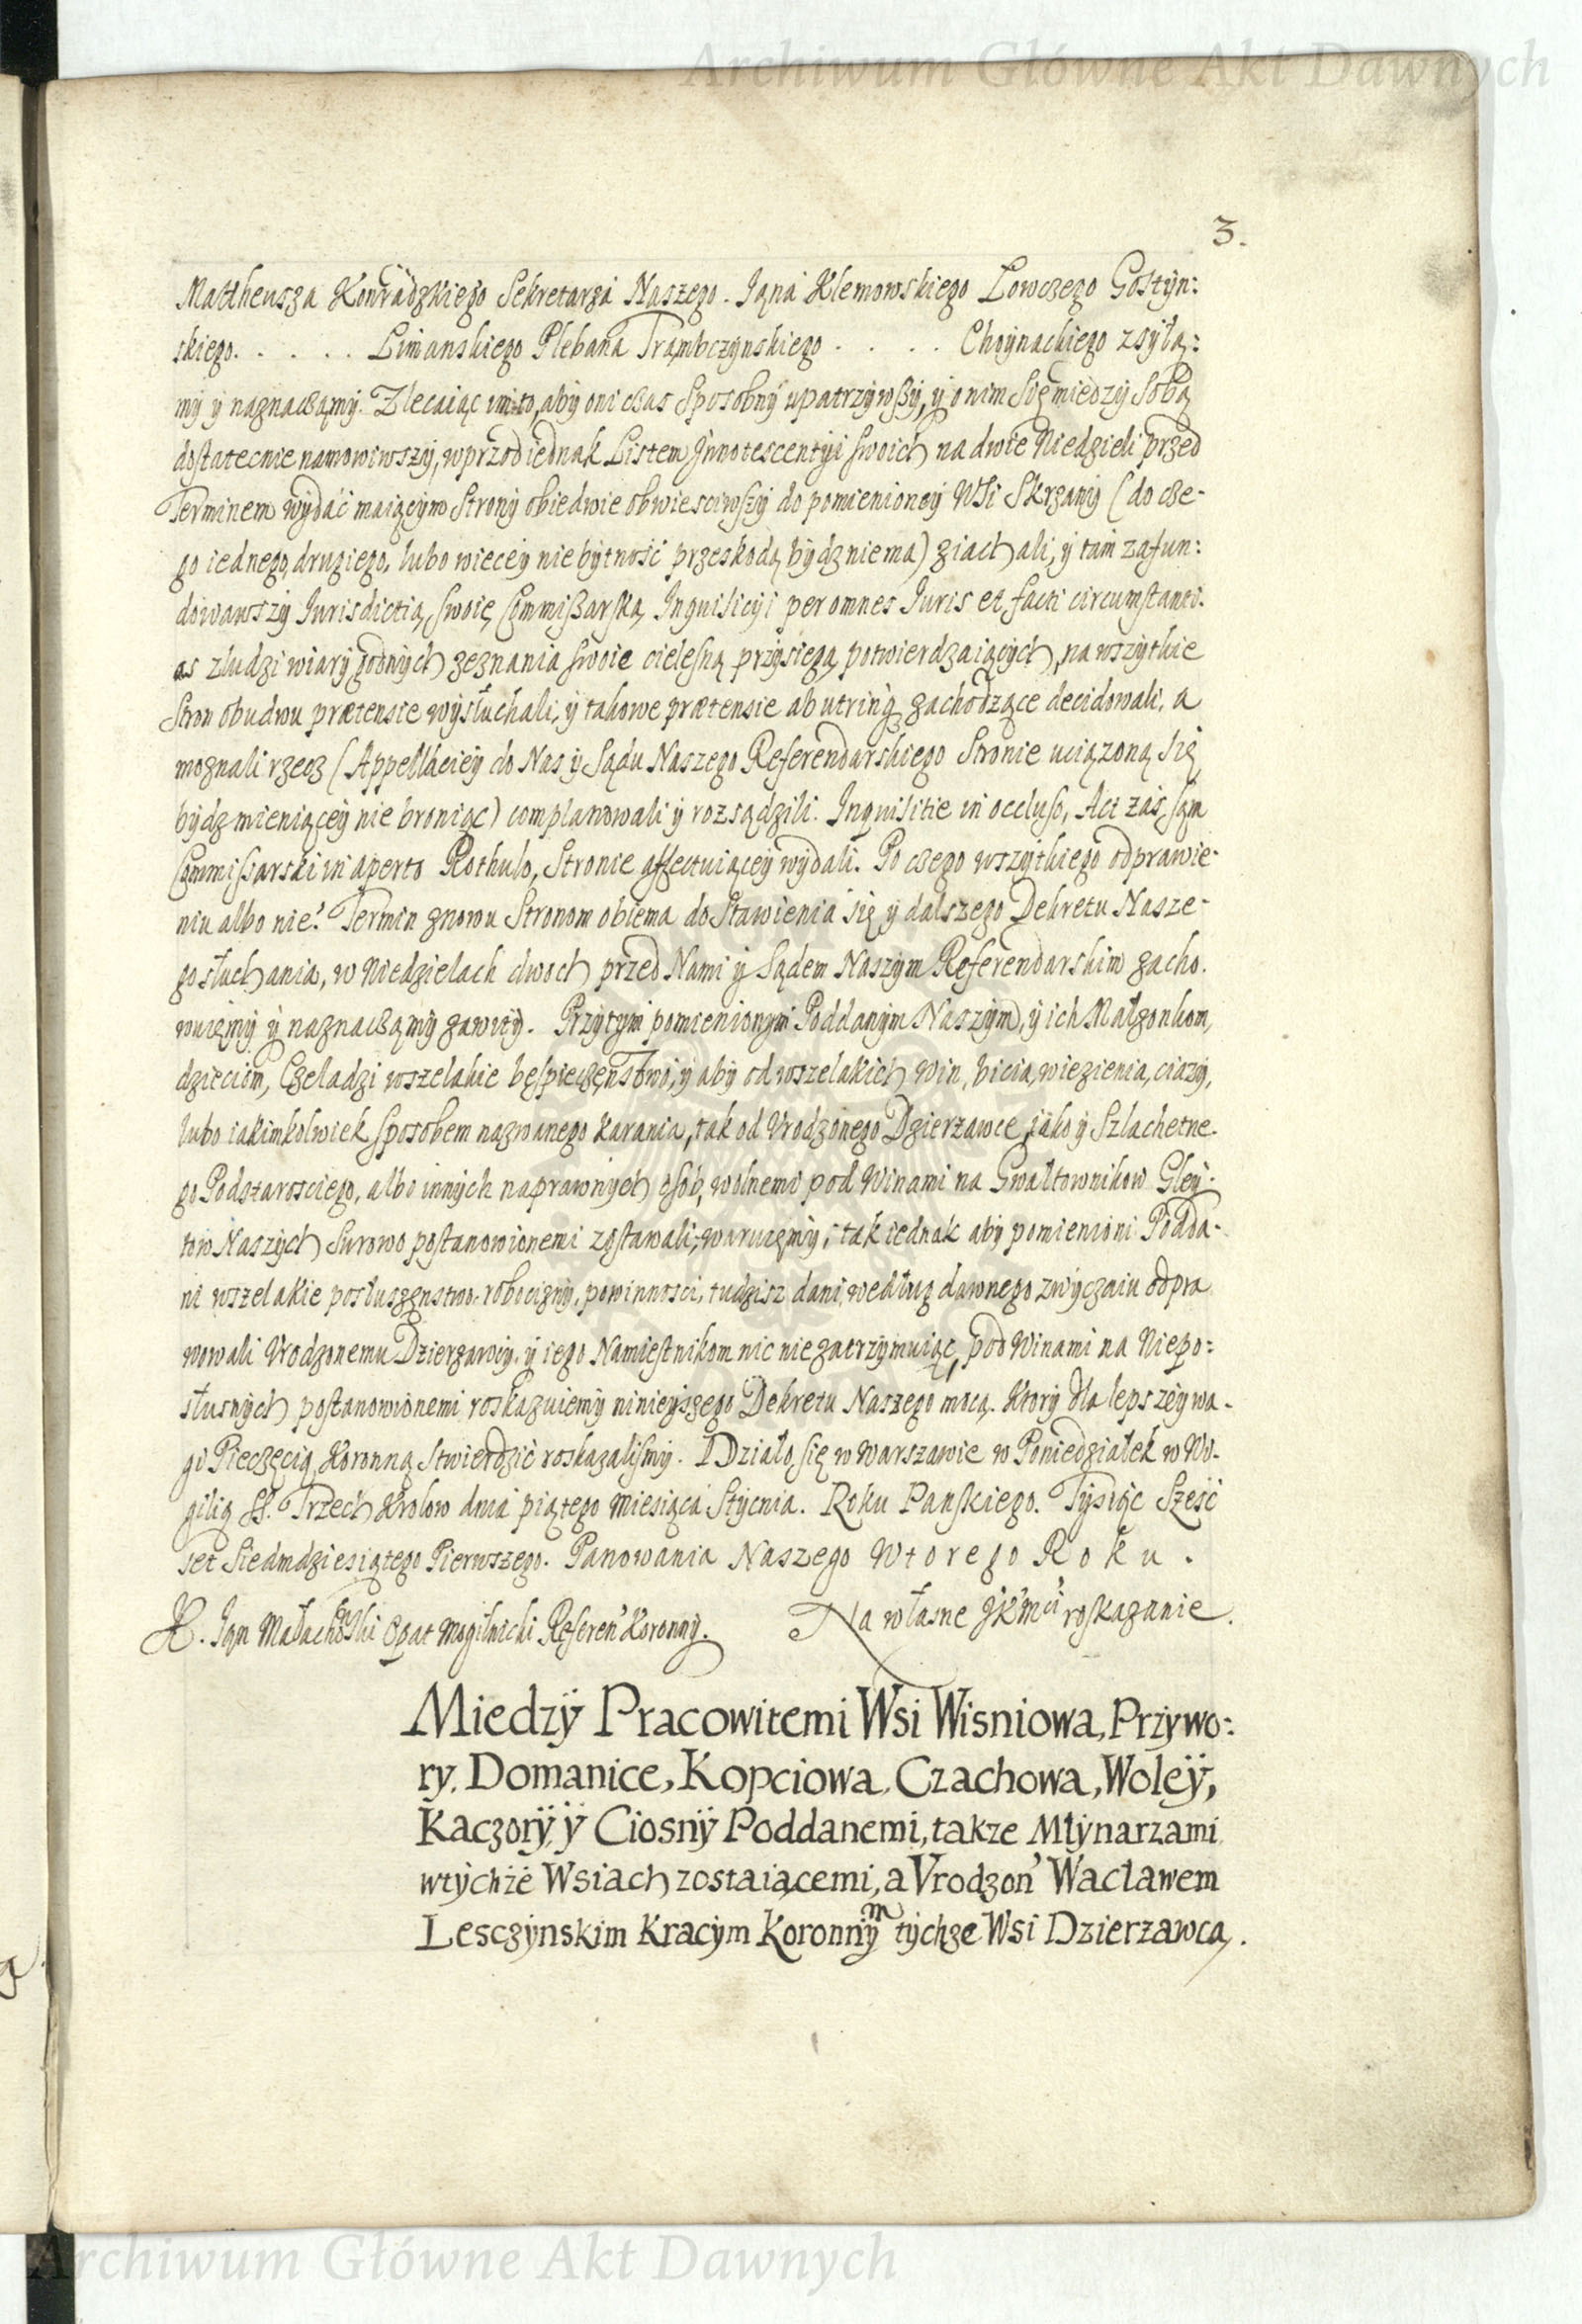 Archiwum Główne Akt Dawnych
3.
Mattheusza Konradzkiego Sekretarza Naszego. Jana Klemowskiego Lowczego Gostyn:
skiego. . . . . Limanskiego Plebana Trąmbczynskiego . . . . Choynackiego zsyła:
my y naznaczamy. Zlecaiąc im to, aby oni czas sposobny upatrzywszy, y o nim się miedzy sobą
dostatecnie namowiwszy, wprzod iednak Listem Innotescentyi swoich na dwie Niedzieli przed
Terminem wydać maiącym Strony obiedwie obwiesciwszy do pomienioney Wsi Skrzany (do cze-
go iednego, drugiego, lubo wiecey nie bytność przeskodą bydz niema) ziachali, y tam zafun:
dowawszy Iurisdictią swoię Commissarską, Inquisicyi per omnes Iuris et facti circumstanti-
as z ludzi wiary godnych zeznania swoie cielesną przysięgą potwierdzaiących, na wszytkie
Stron obudwu prætensie wysłuchali, y takowe prætensie ab utrinq zachodzące decidowali, a
moznali rzecz (Appellaciey do Nas y Sądu Naszego Referendarskiego Stronie uciązoną się
bydz mieniącey nie broniąc) complanowali y rozsądzili. Inquisitie in occluso, Act zas sąm
Commissarski in aperto Rothulo, Stronie affectuiącey wydali. Po czego wszytkiego odprawie-
niu albo nie? Termin znowu Stronom obiema do Stawienia się y dalszego Dekretu Nasze-
go słuchania, w Niedzielach dwoch przed Nami y Sądem Naszym Referendarskim zacho-
wuięmy y naznaczamy zawity. Przytym pomienionym Poddanym Naszym, y ich Małzonkom,
dzieciom, Czeladzi wszelakie bęspieczęnstwo, y aby od wszelakich win, bicia, wiezienia, ciazy,
lubo iakimkolwiek sposobem nazwanego karania, tak od Vrodzonego Dzierzawce, jako y Szlachetne-
go Podstarosciego, albo innych naprawnych osob, wolnemi pod Winami na Gwałtownikow Gley-
tow Naszych Surowo postanowionemi zostawali, waruięmy, tak iednak aby pomienioni Podda-
ni wszelakie posłuszęnstwo, robocizny, powinnosci, tudzisz dani według dawnego zwyczaiu odpra
wowali Vrodzonemu Dzierzawcy, y iego Namiestnikom nic nie zatrzymuiąc, pod Winami na Niepo:
słusnych postanowionemi roskazuiemy ninieyszego Dekretu Naszego mocą. Ktory dla lepszey wa-
gi Pieczęcią Koronną Stwierdzic roskazalismy. Działo się w Warszawie w Poniedziałek w Wi-
gilią SS. Trzech Krolow dnia piątego Miesiąca Stycnia. Roku Panskiego. Tysiąc Szesc
set Siedmdziesiątego Pierwszego. Panowania Naszego Wtorego Roku.
X. Jąn Małachoski Opat Mogilnicki Referen' Koronny. Na własne JKMci roskazanie.
Miedzÿ Pracowitemi Wsi Wisniowa, Przywo:
ry, Domanice, Kopciowa, Czachowa, Woleÿ,
Kaczorÿ, ÿ Ciosnÿ Poddanemi, takze Młynarzami
wtychże Wsiach zostaiącemi, a Vrodzon' Wacławem
Lesczynskim Kracym Koronnym tychze Wsi Dzierzawcą.
Archiwum Główne Akt Dawnych